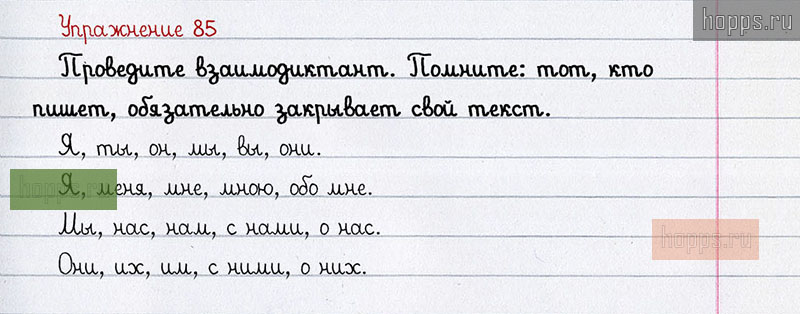 Упражнение 85
hopps.ru
Проведите взаимодиктант. Помните: тот, кто
пишет, обязательно закрывает свой текст.
Я, ты, он, мы, вы, они.
hopps.ru
Я, меня, мне, мною, обо мне.
Мы, нас, нам, с нами, о нас.
hopps.ru
Они, их, им, с ними, о них.